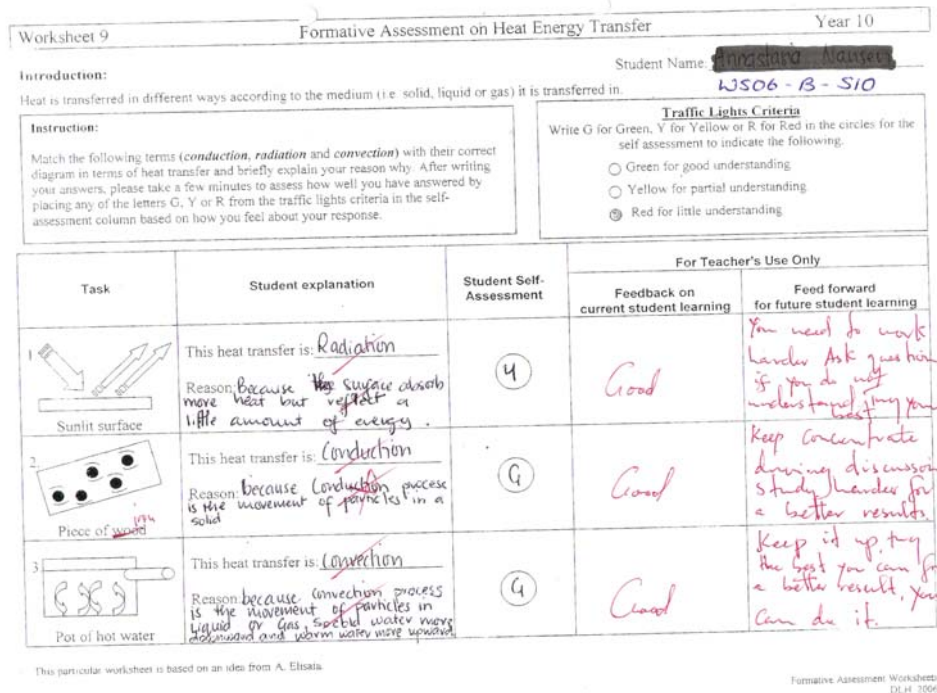 Worksheet 9 Formative Assessment on Heat Energy Transfer Year 10
Student Name:
WS06 - B - S10
Introduction:
Heat is transferred in different ways according to the medium (i.e. solid, liquid or gas) it is transferred in.
Instruction:
Match the following terms (conduction, radiation and convection) with their correct
diagram in terms of heat transfer and briefly explain your reason why. After writing
your answers, please take a few minutes to assess how well you have answered by
placing any of the letters G, Y or R from the traffic lights criteria in the self-
assessment column based on how you feel about your response.
Traffic Lights Criteria
Write G for Green, Y for Yellow or R for Red in the circles for the
self assessment to indicate the following.
Green for good understanding
Yellow for partial understanding
Red for little understanding
Task
Student explanation
Student Self-
Assessment
For Teacher's Use Only
Feedback on
current student learning
Feed forward
for future student learning
1
Sunlit surface
This heat transfer is: Radiation
Reason: Because the surface absorb
more heat but reflect a
little amount of energy.
Y
Good
You need to work
harder Ask question
if you do not
understand try your
best
2.
Piece of wood
This heat transfer is: Conduction
Reason: because Conduction process
is the movement of particles in a
solid
G
Good
Keep Concentrate
during discussion
study harder for
a better results.
3.
Pot of hot water
This heat transfer is: Convection
Reason: because convection process
is the movement of particles in
Liquid or Gas, water move
downward and warm water move upward
G
Good
Keep it up, try
the best you can for
a better result, You
can do it.
This particular worksheet is based on an idea from A. Elisata.
Formative Assessment Worksheets
DLH 2006